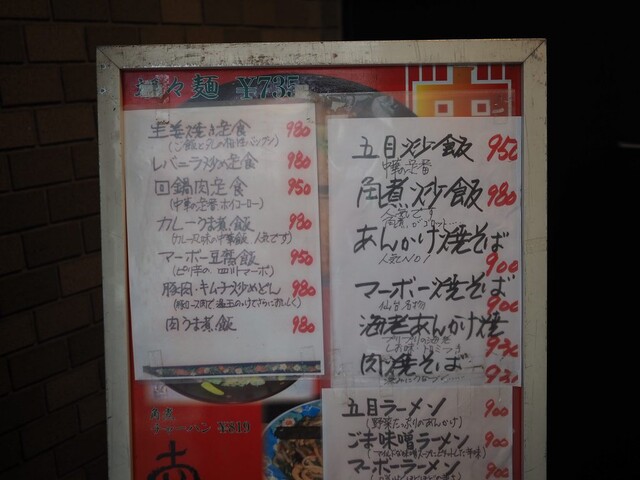 麺 ¥735
生姜焼き定食 980
レバニラ炒め定食 980
回鍋肉定食 950
(中華の定番ホイコーロー)
カレーうま煮飯 980
(カレー風味の中華飯 人気です)
マーボー豆腐飯 950
(ピリ辛の四川マーボ)
豚肉・キムチ炒めどん 980
肉うま煮飯 980
チャーハン
五目炒飯 950
中華の定番
角煮炒飯 980
人気です
あんかけ焼そば 900
人気No1
マーボー焼そば 900
仙台名物
海老あんかけ焼
プリプリの海老
肉焼そば
五目ラーメン 900
(野菜たっぷりのあんかけ)
ごま味噌ラーメン 900
マーボーラーメン 900